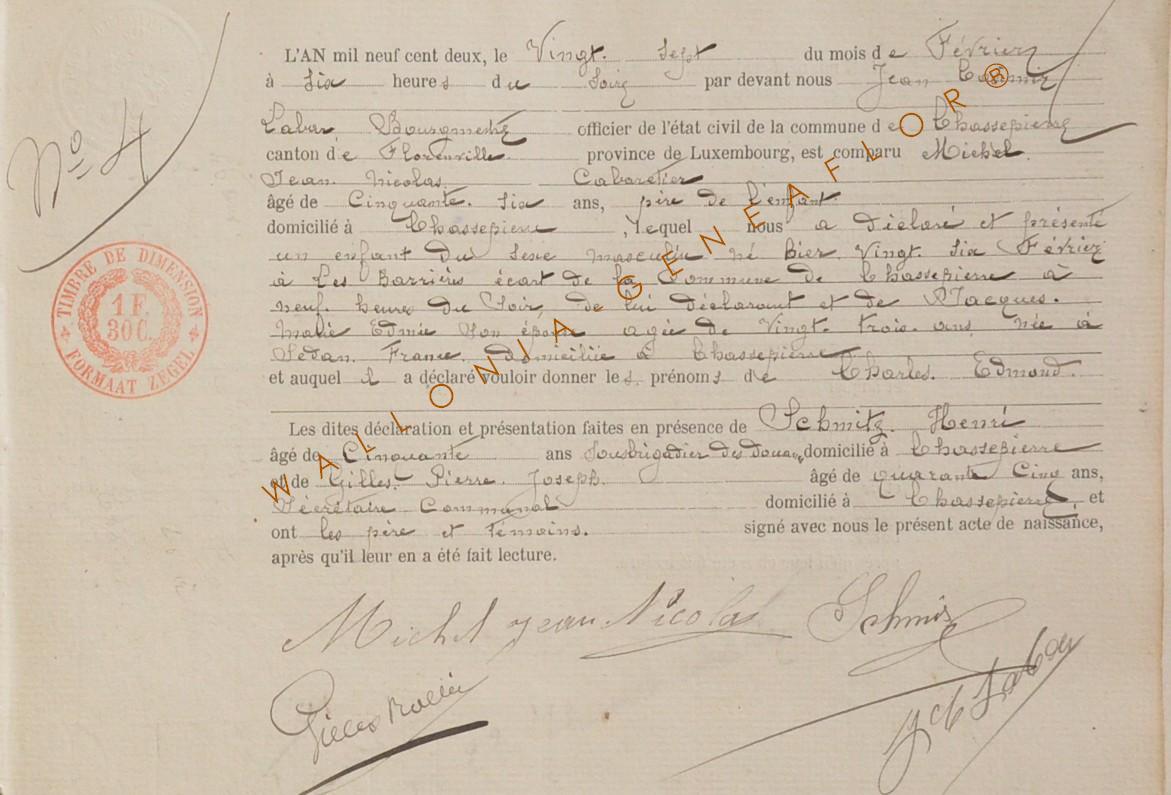 N° 4
L'AN mil neuf cent deux, le Vingt. Sept du mois de Février
à Six heures du Soir par devant nous Jean Casimir
Labar, Bourgmestre officier de l'état civil de la commune de Chassepierre
canton de Florenville. province de Luxembourg, est comparu Michel
Jean. Nicolas. Cabaretier
âgé de Cinquante. Six ans, père de l'enfant
domicilié à Chassepierre, lequel nous a déclaré et présenté
un enfant du Sexe masculin né hier Vingt. Six Février
à Les Barrières écart de la Commune de Chassepierre à
neuf. heures du Soir, de lui déclarant et de Jacques.
Marie Edmée Son épouse agée de Vingt. trois. ans, née à
Sedan. France. domiciliée à Chassepierre
et auquel il a déclaré vouloir donner les prénoms de Charles. Edmond.
Les dites déclaration et présentation faites en présence de Schmitz. Henri
âgé de Cinquante ans Sousbrigadier des douanes domicilié à Chassepierre
et de Gilles. Pierre. Joseph. âgé de quarante Cinq ans,
Sécrétaire Communal domicilié à Chassepierre, et
ont les père et témoins. signé avec nous le présent acte de naissance,
après qu'il leur en a été fait lecture.
TIMBRE DE DIMENSION
1 F.
30C.
FORMAAT ZEGEL
Michel Jean Nicolas Schmitz
Gilles
Jch Labar
WALLONIA GENEAFLOR®